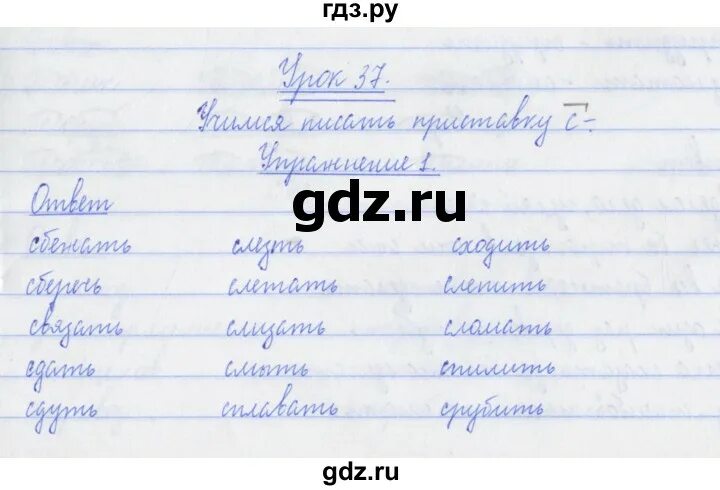 гдз.ру
Урок 37.
Учимся писать приставку с-.
Упражнение 1.
gdz.ru
Ответ
сбежать слезть сходить
сберечь слетать слепить
связать слизать сломать
сдать смыть спилить
сдуть сплавать срубить
gdz.ru